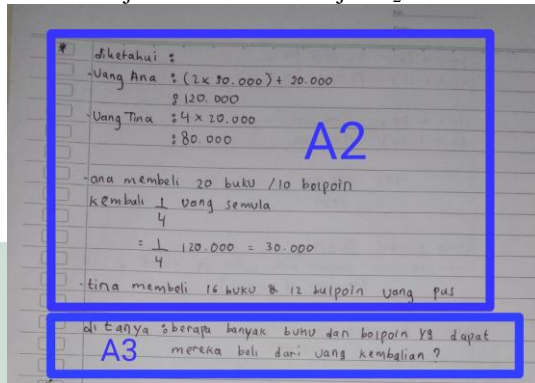 *
diketahui :
-Uang Ana : (2 x 50.000) + 20.000
: 120.000
-Uang Tina : 4 x 20.000
: 80.000
A2
-ana membeli 20 buku /10 bolpoin
kembali 1/4 uang semula
= 1/4 120.000 = 30.000
-tina membeli 16 buku & 12 bulpoin uang pas
di tanya : berapa banyak buku dan bolpoin yg dapat
mereka beli dari uang kembalian ?
A3